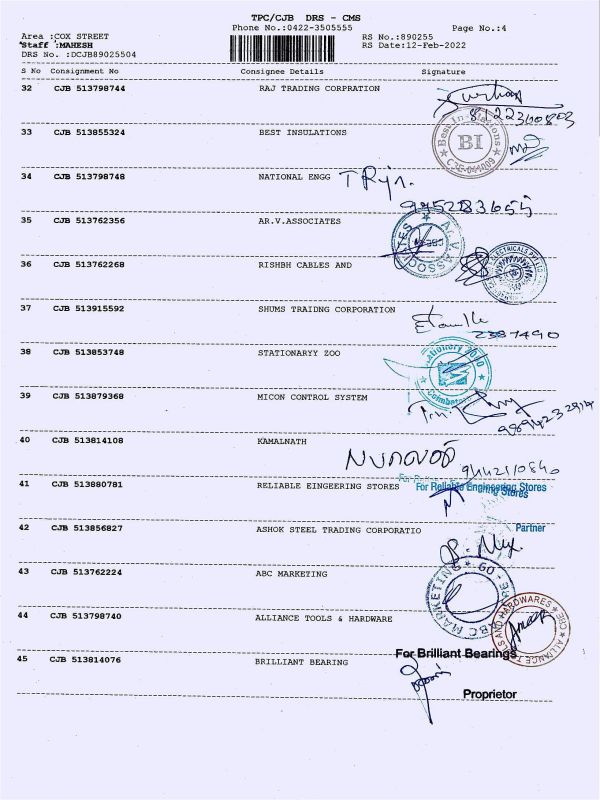 TPC/CJB DRS - CMS
Phone No.:0422-3505555 Page No.:4
Area :COX STREET RS No.:890255
Staff :MAHESH RS Date:12-Feb-2022
DRS No. :DCJB89025504
S No Consignment No Consignee Details Signature
32 CJB 513798744 RAJ TRADING CORPRATION
8122360803
33 CJB 513855324 BEST INSULATIONS
BI
34 CJB 513798748 NATIONAL ENGG
995283655
35 CJB 513762356 AR.V.ASSOCIATES
AR.V ASSOCIATES
36 CJB 513762268 RISHBH CABLES AND
37 CJB 513915592 SHUMS TRAIDNG CORPORATION
2387490
38 CJB 513853748 STATIONARYY ZOO
Coimbatore
39 CJB 513879368 MICON CONTROL SYSTEM
9894232914
40 CJB 513814108 KAMALNATH
41 CJB 513880781 RELIABLE EINGEERING STORES
For Reliable Engineering Stores
Partner
42 CJB 513856827 ASHOK STEEL TRADING CORPORATIO
43 CJB 513762224 ABC MARKETING
ABC MARKETING
44 CJB 513798740 ALLIANCE TOOLS & HARDWARE
ALLIANCE TOOLS AND HARDWARES CBE
For Brilliant Bearings
45 CJB 513814076 BRILLIANT BEARING
Proprietor